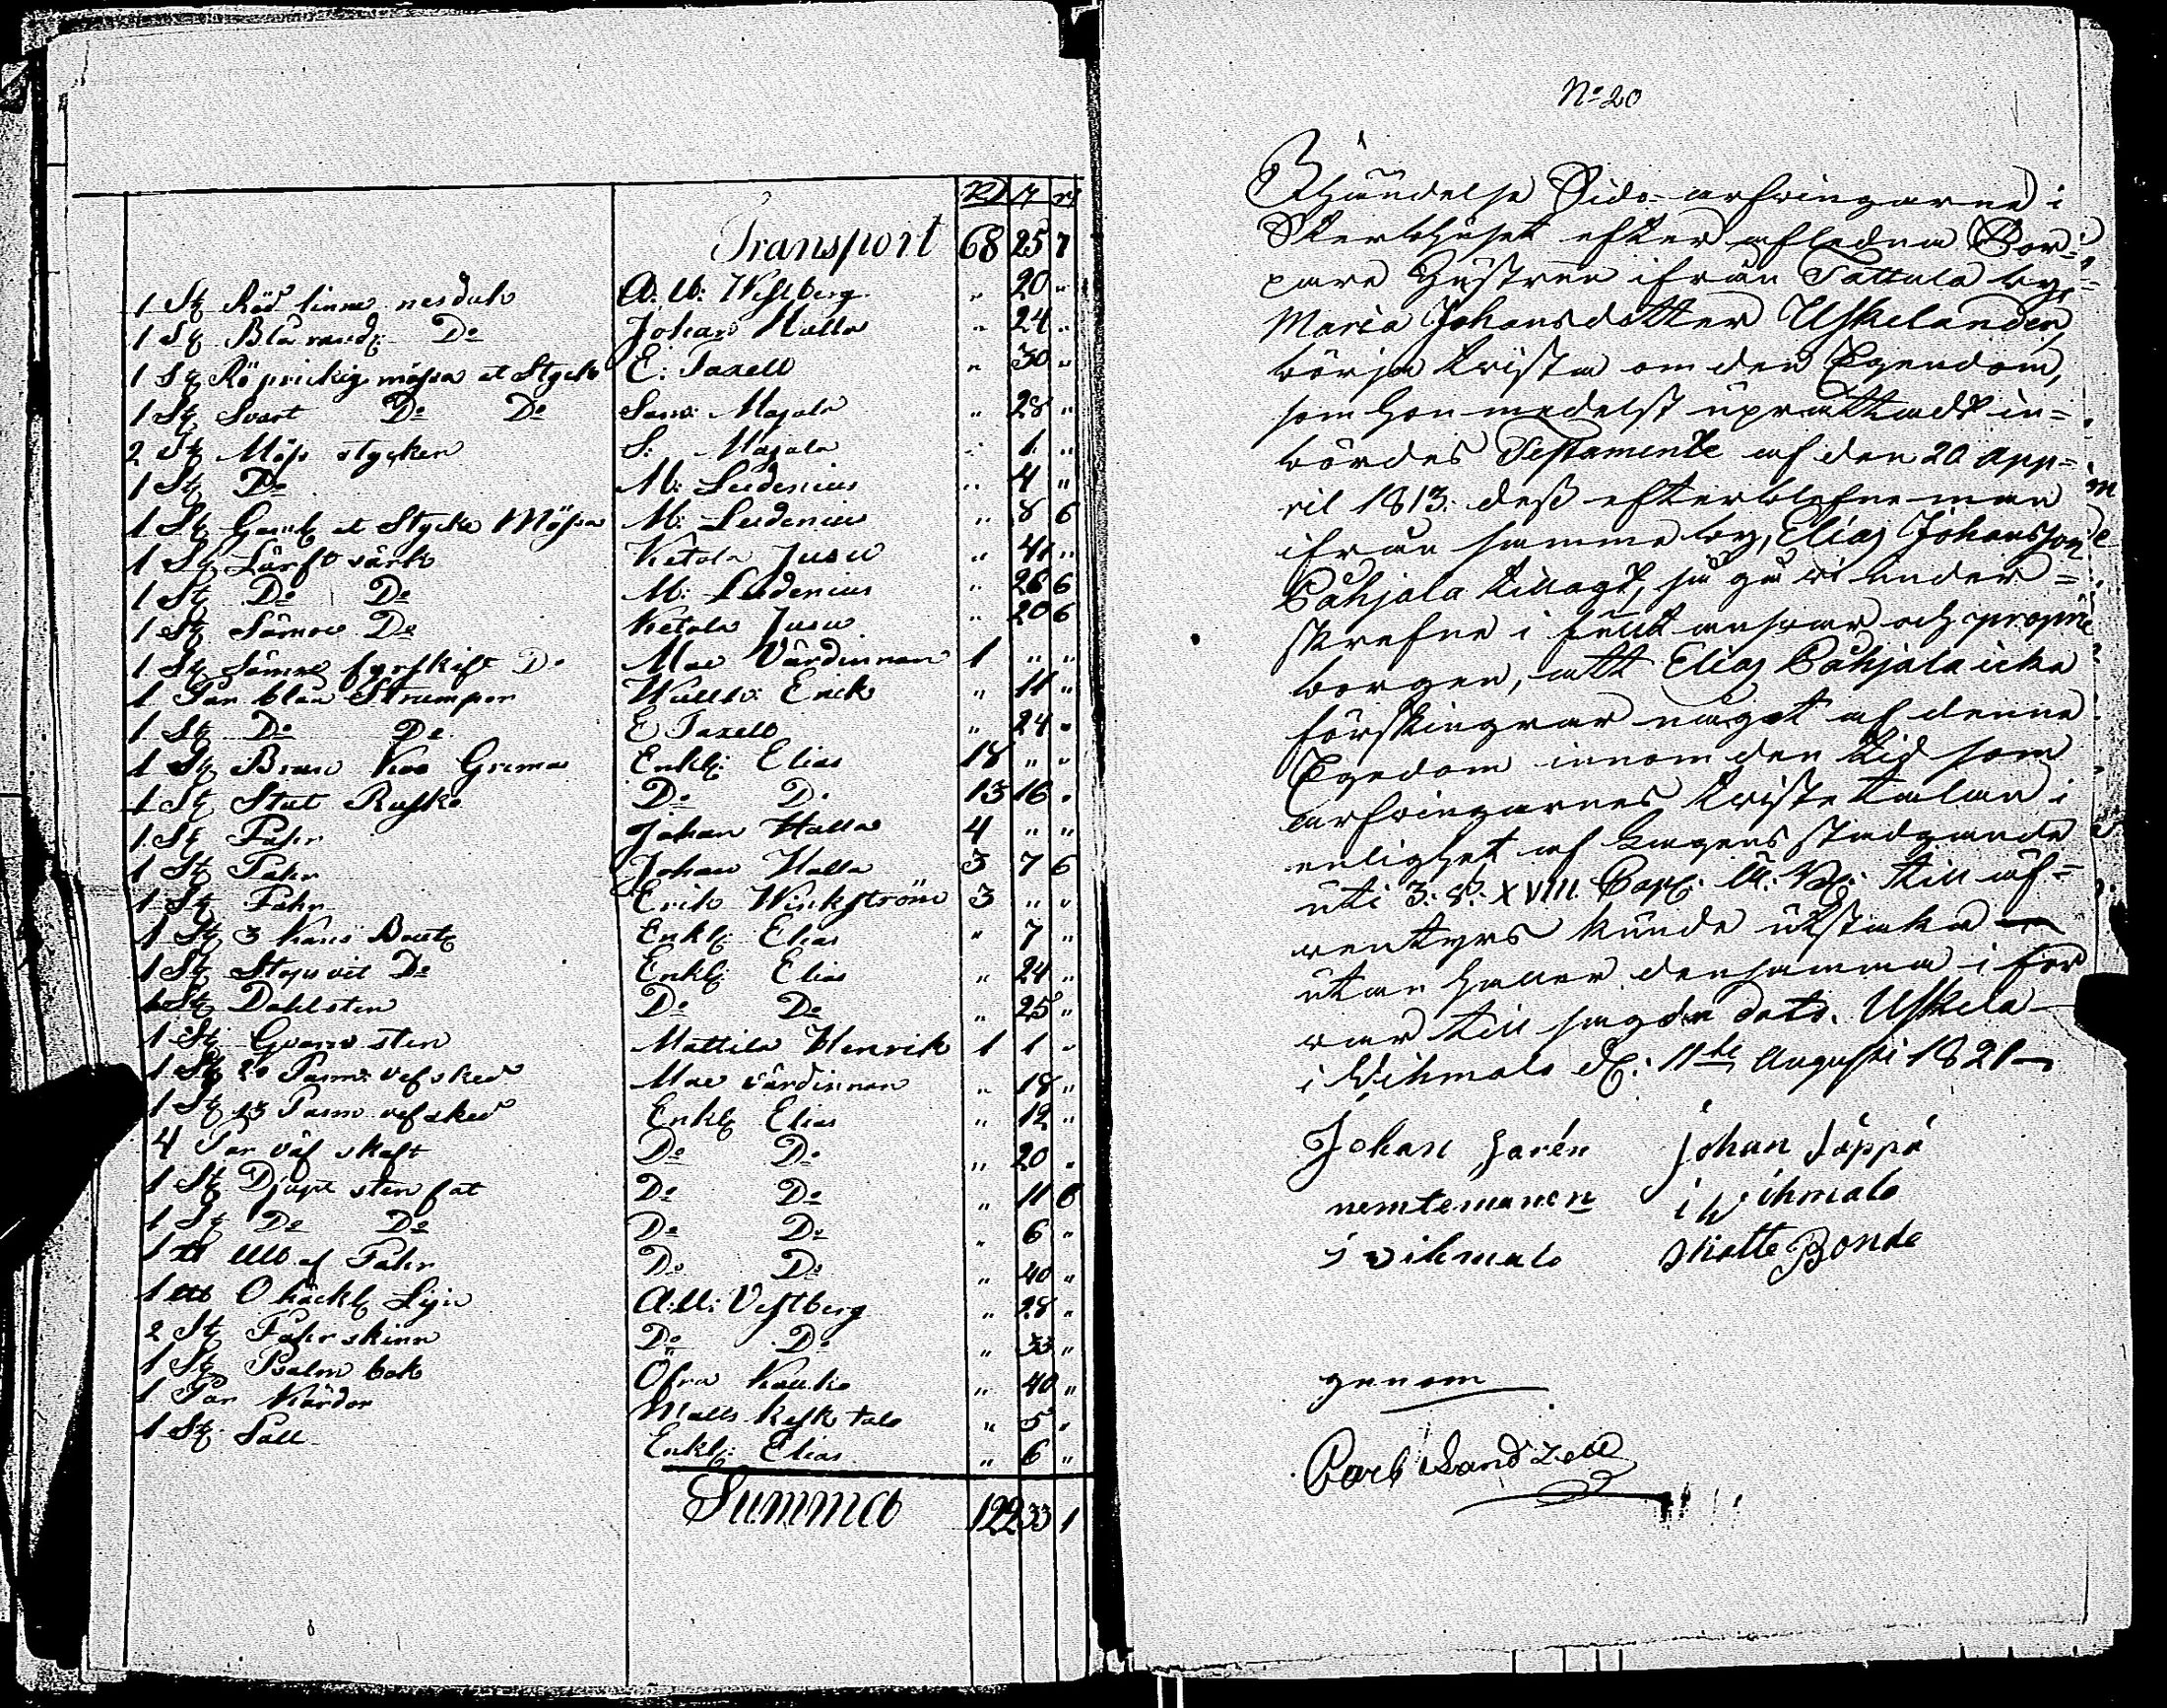 Rd ß rs
Transport 68 25 7
1 St Röd linne nesduk A. W: Westberg " 20 "
1 St Blå rand: Do Johan Halla " 24 "
1 St Rö prickig mössa et Stycke E: Taxell " 30 "
1 St Svart Do Do Majala " 28 "
2 St Möss stycken S: Majala " 1 "
1 St Do M: Ludenius " 4 "
1 St Gaml et Stycke Mössa M: Ludenius " 8 6
1 St Lärft särk Ketola Jusu " 41 "
1 St Do Do M: Ludenius " 26 6
1 St Sämre Do Ketola Jusu " 20 6
1 St Sämre fyrskift Do Moe Värdinnan 1 " "
1 Par blåa Strumpor Erick " 11 "
1 St Do Do E Taxell " 24 "
1 St Brun Koo Grima Enkl: Elias 18 " "
1 St Stut Rusko Do Do 13 16 "
1 St Fahr Johan Halla 4 " "
1 St Fahr Johan Halla 3 7 6
1 St Fahr Erik Wickström 3 " "
1 St 3 Kans Enkl: Elias " 7 "
1 St Do Enkl: Elias " 24 "
St Dahlsten Do Do " 25 "
1 St Qvarnsten Mattila Henrik 1 1 "
1 St 20 Pasm: vefsked Moe värdinnan " 18 "
1 St 13 Pasm vefsked Enkl Elias " 12 "
4 Par väf skaft Do Do " 20 "
1 St Djupt stenfat Do Do " 11 6
1 St Do Do Do Do " 6 "
1 lb Ull af Fahr Do Do " 40 "
1 lb Ohäckl Lijn A: W: Vestberg " 28 "
2 St Fahrskinn Do Do " 33 "
1 St Psalm bok Öfra Kauko " 40 "
1 Par Kardor Matts Kesk talo " 5 "
1 St Såll Enkl: Elias " 6 "
Summa 122 33 1
No 20
Ehuündelse Sido-arfwingarne i
Sterbhuset efter afledna Tor-
pare hustrun ifrån Tattula by,
Maria Johansdotter Uskelanden,
börja twista om den Egendom,
som hon medelst uprättadt in-
bördes Testamente af den 20 App-
ril 1813. dess efterblefne man
ifrån samma by, Elias Johansson
Påhjala tillagt, så gå vi under-
skrefne i fullt answar och proprie
borgen, att Elias Påhjala icke
förskingrar något af denna
Egedom innom den tid som
arfwingarnes twiste talan i
enlighet af Lagens stadgande
uti 3. §. XVIII. Cap. Ä. B. till äf-
wentyrs kunde utstaka
utan håller densamma i för
war till sagde dato. Uskela
i Wihmalo d: 11te Augusti 1821
Johan Jarén Johan Säppä
nemtemanen i Wihmalo
i wihmalo Skatte Bonde
genom
Carl Sandzell